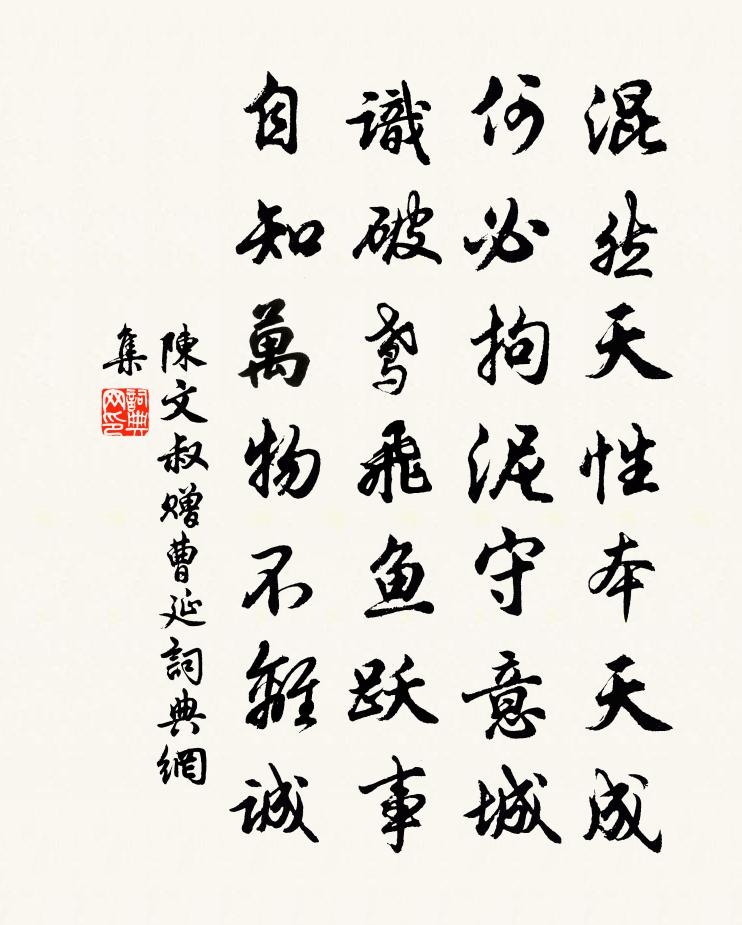 混然天性本天成
何必拘泥守意城
識破鸢飛鱼跃事
自知萬物不離誠
陳文叔赠曹延詞典網
集
詞典网印